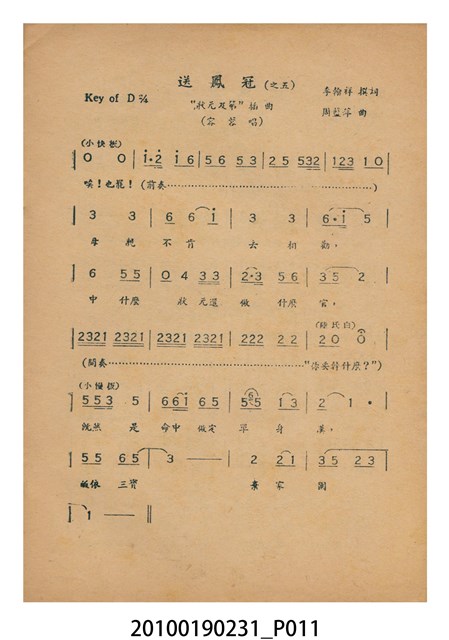 送鳳冠(之五)
Key of D 2/4
"狀元及第" 插曲
李翰祥 撰詞
(容蓉唱)
周藍萍 曲
(小快板)
0 0 | i·2 i6 | 56 53 | 25 532 | 123 10 |
唉!也罷!(前奏…………………………)
3 3 | 66 i | 3 3 | 6·i 5 |
母親不肯去相勸,
6 55 | 04 33 | 2·3 56 | 35 2 |
中什麼狀元還做什麼官,
(陸氏白)
2321 2321 | 2321 2321 | 222 22 | 20 0 |
(間奏…………………………"你要幹什麼?")
(小慢板)
553 5 | 66i 65 | 5·65 i3 | 2 1 · |
既然是命中做定單身漢,
55 65 | 3 — — | 2 21 | 35 23 |
皈依三寶棄家園
| 1 — — ‖
20100190231_P011